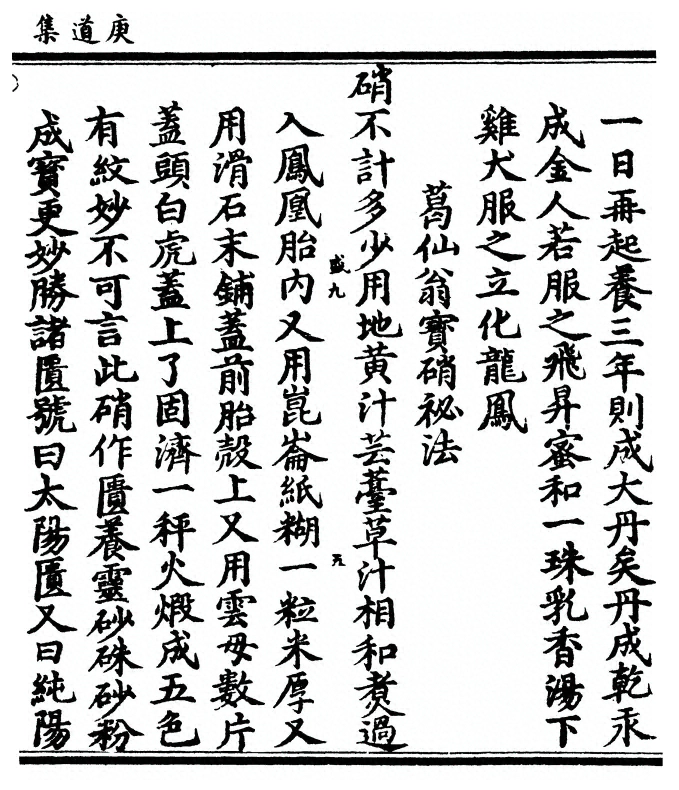 庚道集
一日再起養三年則成大丹矣丹成乾汞
成金人若服之飛昇蜜和一珠乳香湯下
雞犬服之立化龍鳳
葛仙翁寶硝祕法
硝不計多少用地黃汁芸薹草汁相和煑過
盛九
元
入鳳凰胎內又用崑崙紙糊一粒米厚又
用滑石末鋪蓋前胎殼上又用雲母數片
蓋頭白虎蓋上了固濟一秤火煅成五色
有紋妙不可言此硝作匱養靈砂硃砂粉
成寶更妙勝諸匱號曰太陽匱又曰純陽